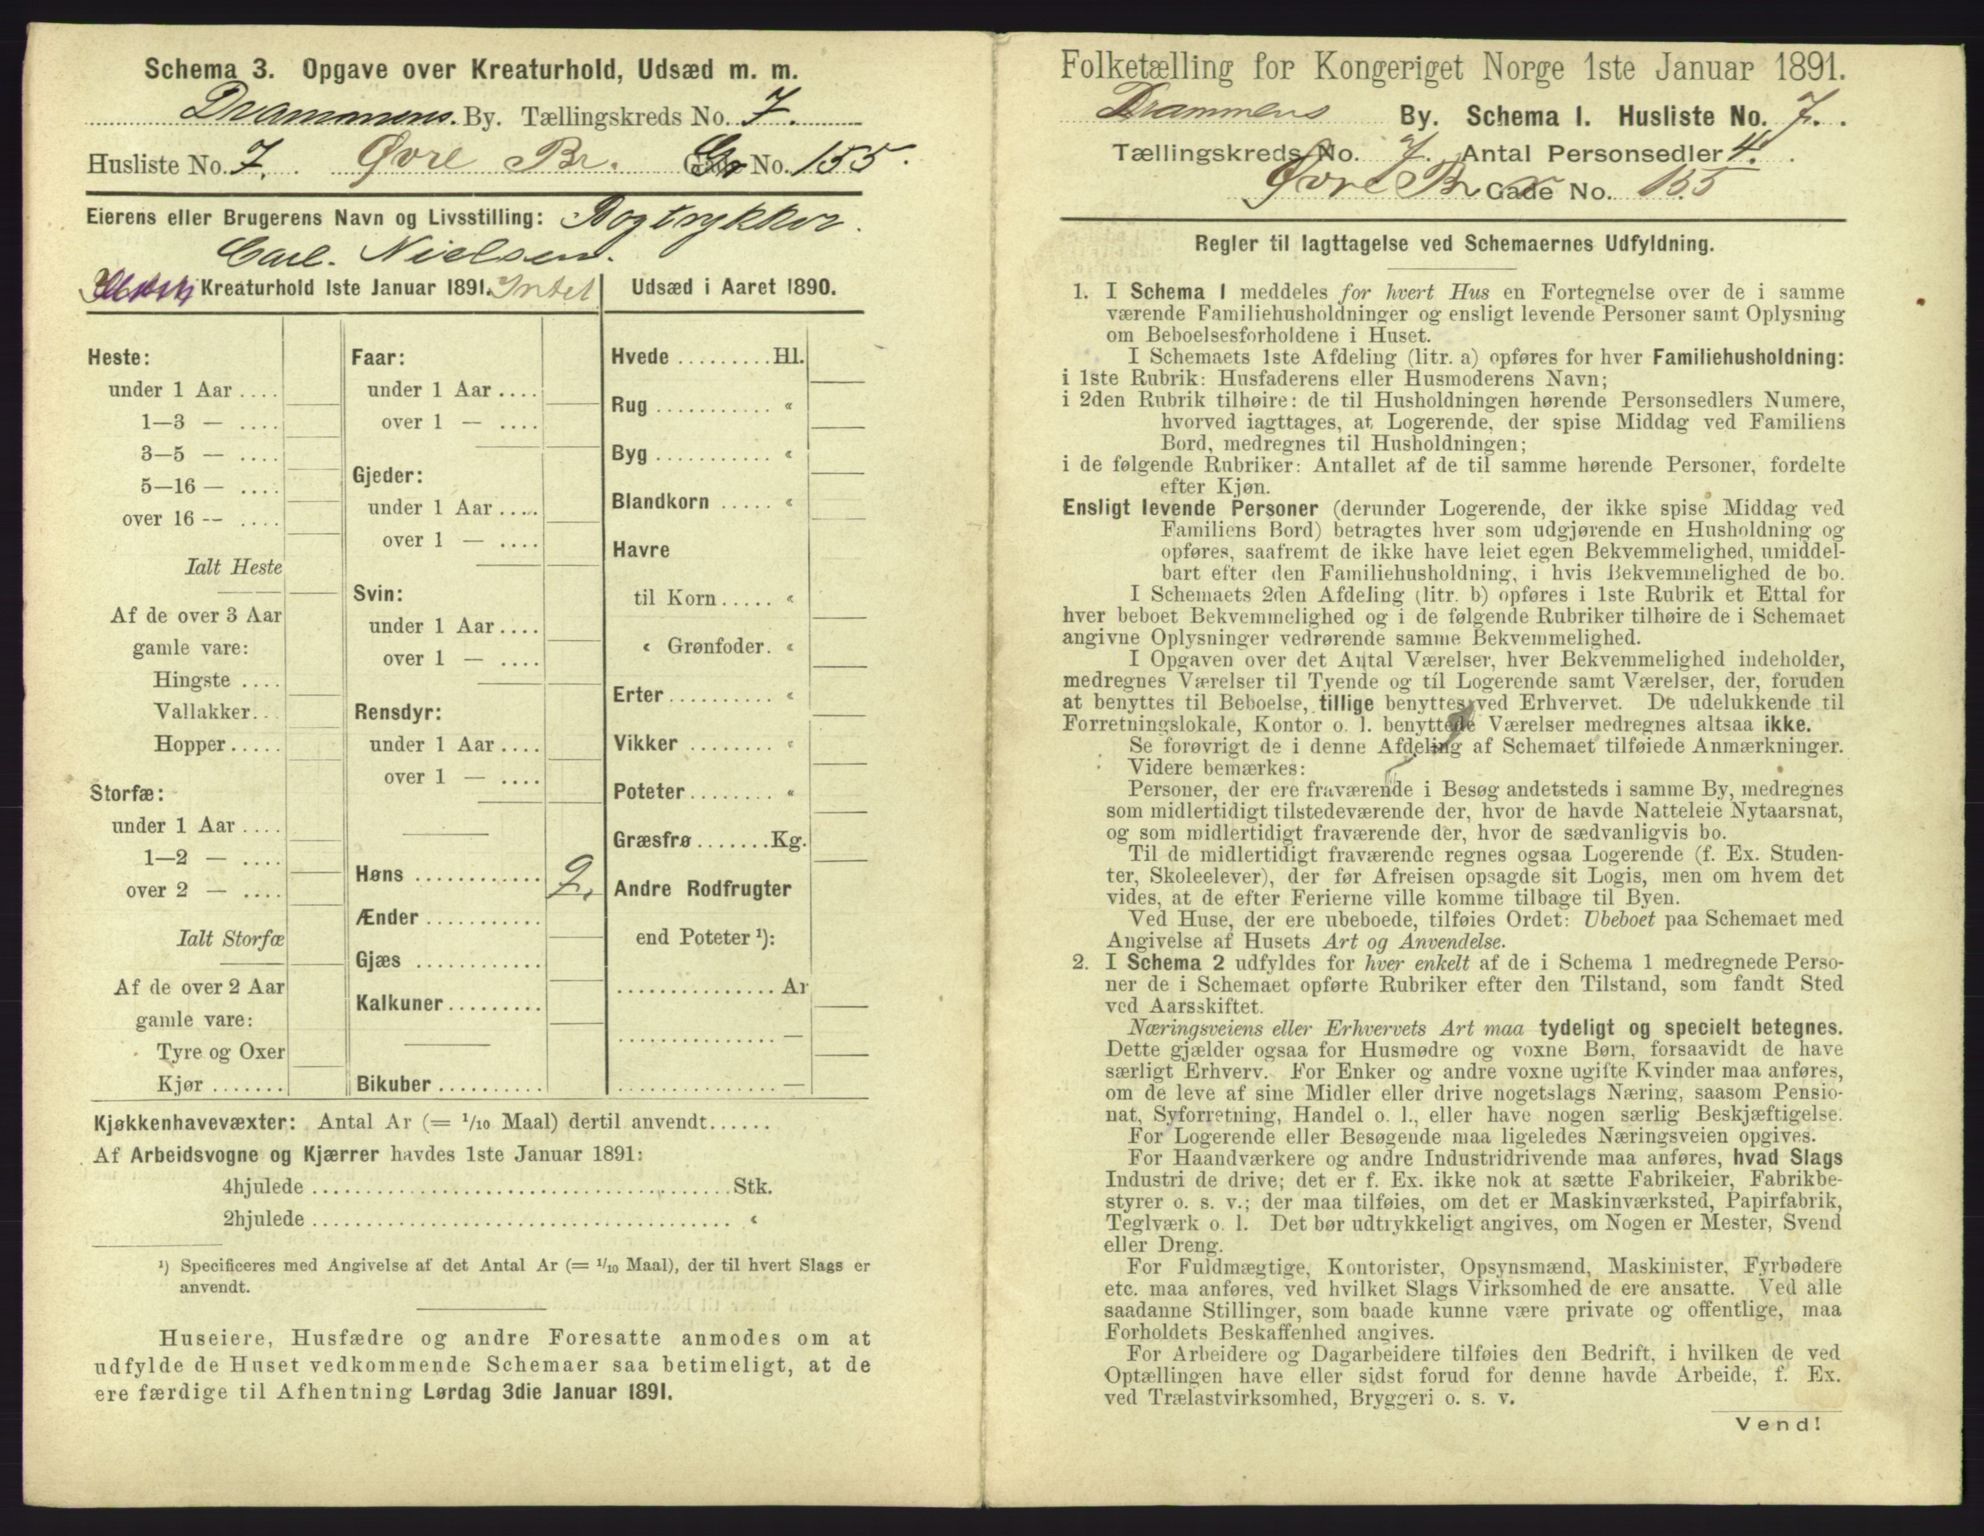 Schema 3. Opgave over Kreaturhold, Udsæd m. m.
Drammens. By. Tællingskreds No. 7.
Husliste No. 7. Øvre Br. Gade No. 155.
Eierens eller Brugerens Navn og Livsstilling: Bogtrykker
Carl. Nielsen.
Kreaturhold 1ste Januar 1891. Intet
Heste:
under 1 Aar ....
1—3 — ....
3—5 — ....
5—16 — ....
over 16 -- ....
Ialt Heste
Af de over 3 Aar
gamle vare:
Hingste ....
Vallakker..
Hopper.....
Storfæ:
under 1 Aar ....
1—2 — ....
over 2 — ....
Ialt Storfæ
Af de over 2 Aar
gamle vare:
Tyre og Oxer
Kjør .......
Faar:
under 1 Aar ....
over 1 — ....
Gjeder:
under 1 Aar ....
over 1 — ....
Svin:
under 1 Aar ....
over 1 — ....
Rensdyr:
under 1 Aar ....
over 1 — ....
Høns ............ 2.
Ænder ...........
Gjæs ............
Kalkuner.........
Bikuber ..........
Udsæd i Aaret 1890.
Hvede .........Hl.
Rug ........... «
Byg ........... «
Blandkorn ..... «
Havre
til Korn ..... «
« Grønfoder. «
Erter ......... «
Vikker ........ «
Poteter ........ «
Græsfrø .......Kg.
Andre Rodfrugter
end Poteter ¹):
............... Ar
............... —
............... —
Kjøkkenhavevæxter: Antal Ar (= 1/10 Maal) dertil anvendt......
Af Arbeidsvogne og Kjærrer havdes 1ste Januar 1891:
4hjulede ........................................Stk.
2hjulede ........................................ «
¹) Specificeres med Angivelse af det Antal Ar (= 1/10 Maal), der til hvert Slags er
anvendt.
Huseiere, Husfædre og andre Foresatte anmodes om at
udfylde de Huset vedkommende Schemaer saa betimeligt, at de
ere færdige til Afhentning Lørdag 3die Januar 1891.
Folketælling for Kongeriget Norge 1ste Januar 1891.
Drammens By. Schema 1. Husliste No. 7.
Tællingskreds No. 7. Antal Personsedler 4.
Øvre Br Gade No. 155
Regler til Iagttagelse ved Schemaernes Udfyldning.
1. I Schema 1 meddeles for hvert Hus en Fortegnelse over de i samme
værende Familiehusholdninger og ensligt levende Personer samt Oplysning
om Beboelsesforholdene i Huset.
I Schemaets 1ste Afdeling (litr. a) opføres for hver Familiehusholdning:
i 1ste Rubrik: Husfaderens eller Husmoderens Navn;
i 2den Rubrik tilhøire: de til Husholdningen hørende Personsedlers Numere,
hvorved iagttages, at Logerende, der spise Middag ved Familiens
Bord, medregnes til Husholdningen;
i de følgende Rubriker: Antallet af de til samme hørende Personer, fordelte
efter Kjøn.
Ensligt levende Personer (derunder Logerende, der ikke spise Middag ved
Familiens Bord) betragtes hver som udgjørende en Husholdning og
opføres, saafremt de ikke have leiet egen Bekvemmelighed, umiddel-
bart efter den Familiehusholdning, i hvis Bekvemmelighed de bo.
I Schemaets 2den Afdeling (litr. b) opføres i 1ste Rubrik et Ettal for
hver beboet Bekvemmelighed og i de følgende Rubriker tilhøire de i Schemaet
angivne Oplysninger vedrørende samme Bekvemmelighed.
I Opgaven over det Antal Værelser, hver Bekvemmelighed indeholder,
medregnes Værelser til Tyende og til Logerende samt Værelser, der, foruden
at benyttes til Beboelse, tillige benyttes ved Erhvervet. De udelukkende til
Forretningslokale, Kontor o. l. benyttede Værelser medregnes altsaa ikke.
Se forøvrigt de i denne Afdeling af Schemaet tilføiede Anmærkninger.
Videre bemærkes:
Personer, der ere fraværende i Besøg andetsteds i samme By, medregnes
som midlertidigt tilstedeværende der, hvor de havde Natteleie Nytaarsnat,
og som midlertidigt fraværende der, hvor de sædvanligvis bo.
Til de midlertidigt fraværende regnes ogsaa Logerende (f. Ex. Studen-
ter, Skoleelever), der før Afreisen opsagde sit Logis, men om hvem det
vides, at de efter Ferierne ville komme tilbage til Byen.
Ved Huse, der ere ubeboede, tilføies Ordet: Ubeboet paa Schemaet med
Angivelse af Husets Art og Anvendelse.
2. I Schema 2 udfyldes for hver enkelt af de i Schema 1 medregnede Perso-
ner de i Schemaet opførte Rubriker efter den Tilstand, som fandt Sted
ved Aarsskiftet.
Næringsveiens eller Erhvervets Art maa tydeligt og specielt betegnes.
Dette gjælder ogsaa for Husmødre og voxne Børn, forsaavidt de have
særligt Erhverv. For Enker og andre voxne ugifte Kvinder maa anføres,
om de leve af sine Midler eller drive nogetslags Næring, saasom Pensio-
nat, Syforretning, Handel o. l., eller have nogen særlig Beskjæftigelse.
For Logerende eller Besøgende maa ligeledes Næringsveien opgives.
For Haandværkere og andre Industridrivende maa anføres, hvad Slags
Industri de drive; det er f. Ex. ikke nok at sætte Fabrikeier, Fabrikbe-
styrer o. s. v.; der maa tilføies, om det er Maskinværksted, Papirfabrik,
Teglværk o. l. Det bør udtrykkeligt angives, om Nogen er Mester, Svend
eller Dreng.
For Fuldmægtige, Kontorister, Opsynsmænd, Maskinister, Fyrbødere
etc. maa anføres, ved hvilket Slags Virksomhed de ere ansatte. Ved alle
saadanne Stillinger, som baade kunne være private og offentlige, maa
Forholdets Beskaffenhed angives.
For Arbeidere og Dagarbeidere tilføies den Bedrift, i hvilken de ved
Optællingen have eller sidst forud for denne havde Arbeide, f. Ex.
ved Trælastvirksomhed, Bryggeri o. s. v.
Vend!